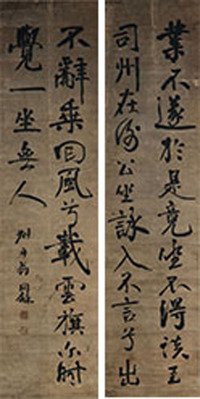 業不遂於是竟坐不得談王
司州在謝公坐詠入不言兮出
不辭乘回風兮載雲旗尒時
覺一坐無人
叔平翁同龢